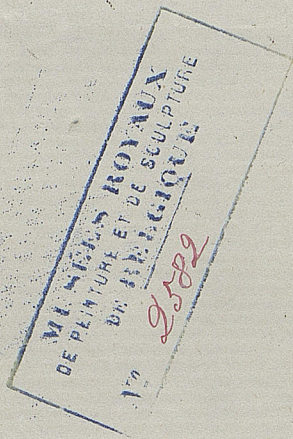 MUSÉES ROYAUX
DE PEINTURE ET DE SCULPTURE
DE BELGIQUE
No 2582